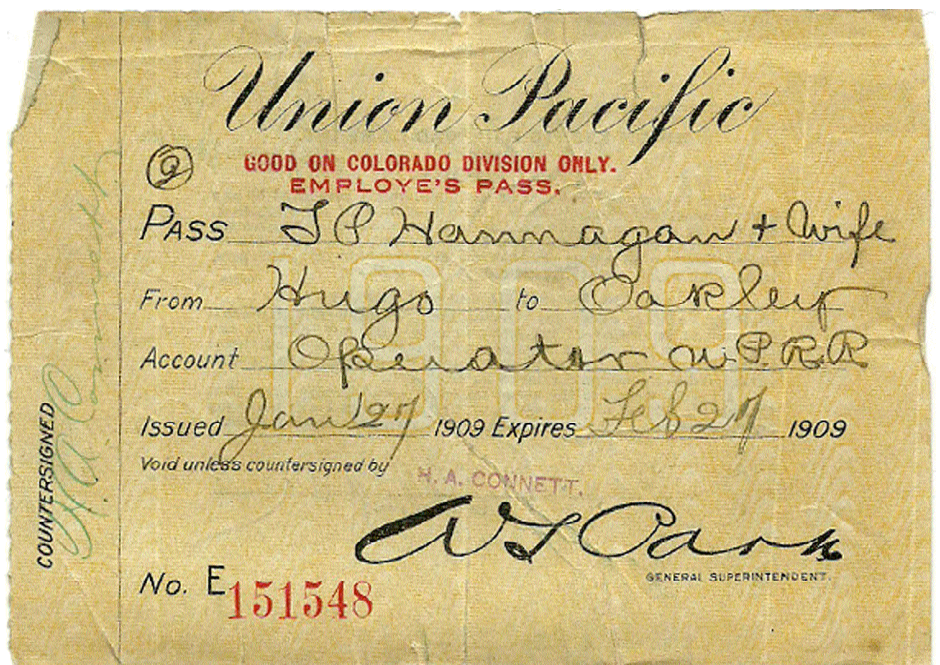 Union Pacific
2 GOOD ON COLORADO DIVISION ONLY.
EMPLOYE'S PASS.
PASS T P Hannagan + Wife
From Hugo to Oakley
Account Operator U P R R
Issued Jan 27 1909 Expires Feb 27 1909
Void unless countersigned by H. A. CONNETT.
W L Park
GENERAL SUPERINTENDENT.
No. E 151548
COUNTERSIGNED H. A. Connett
1909